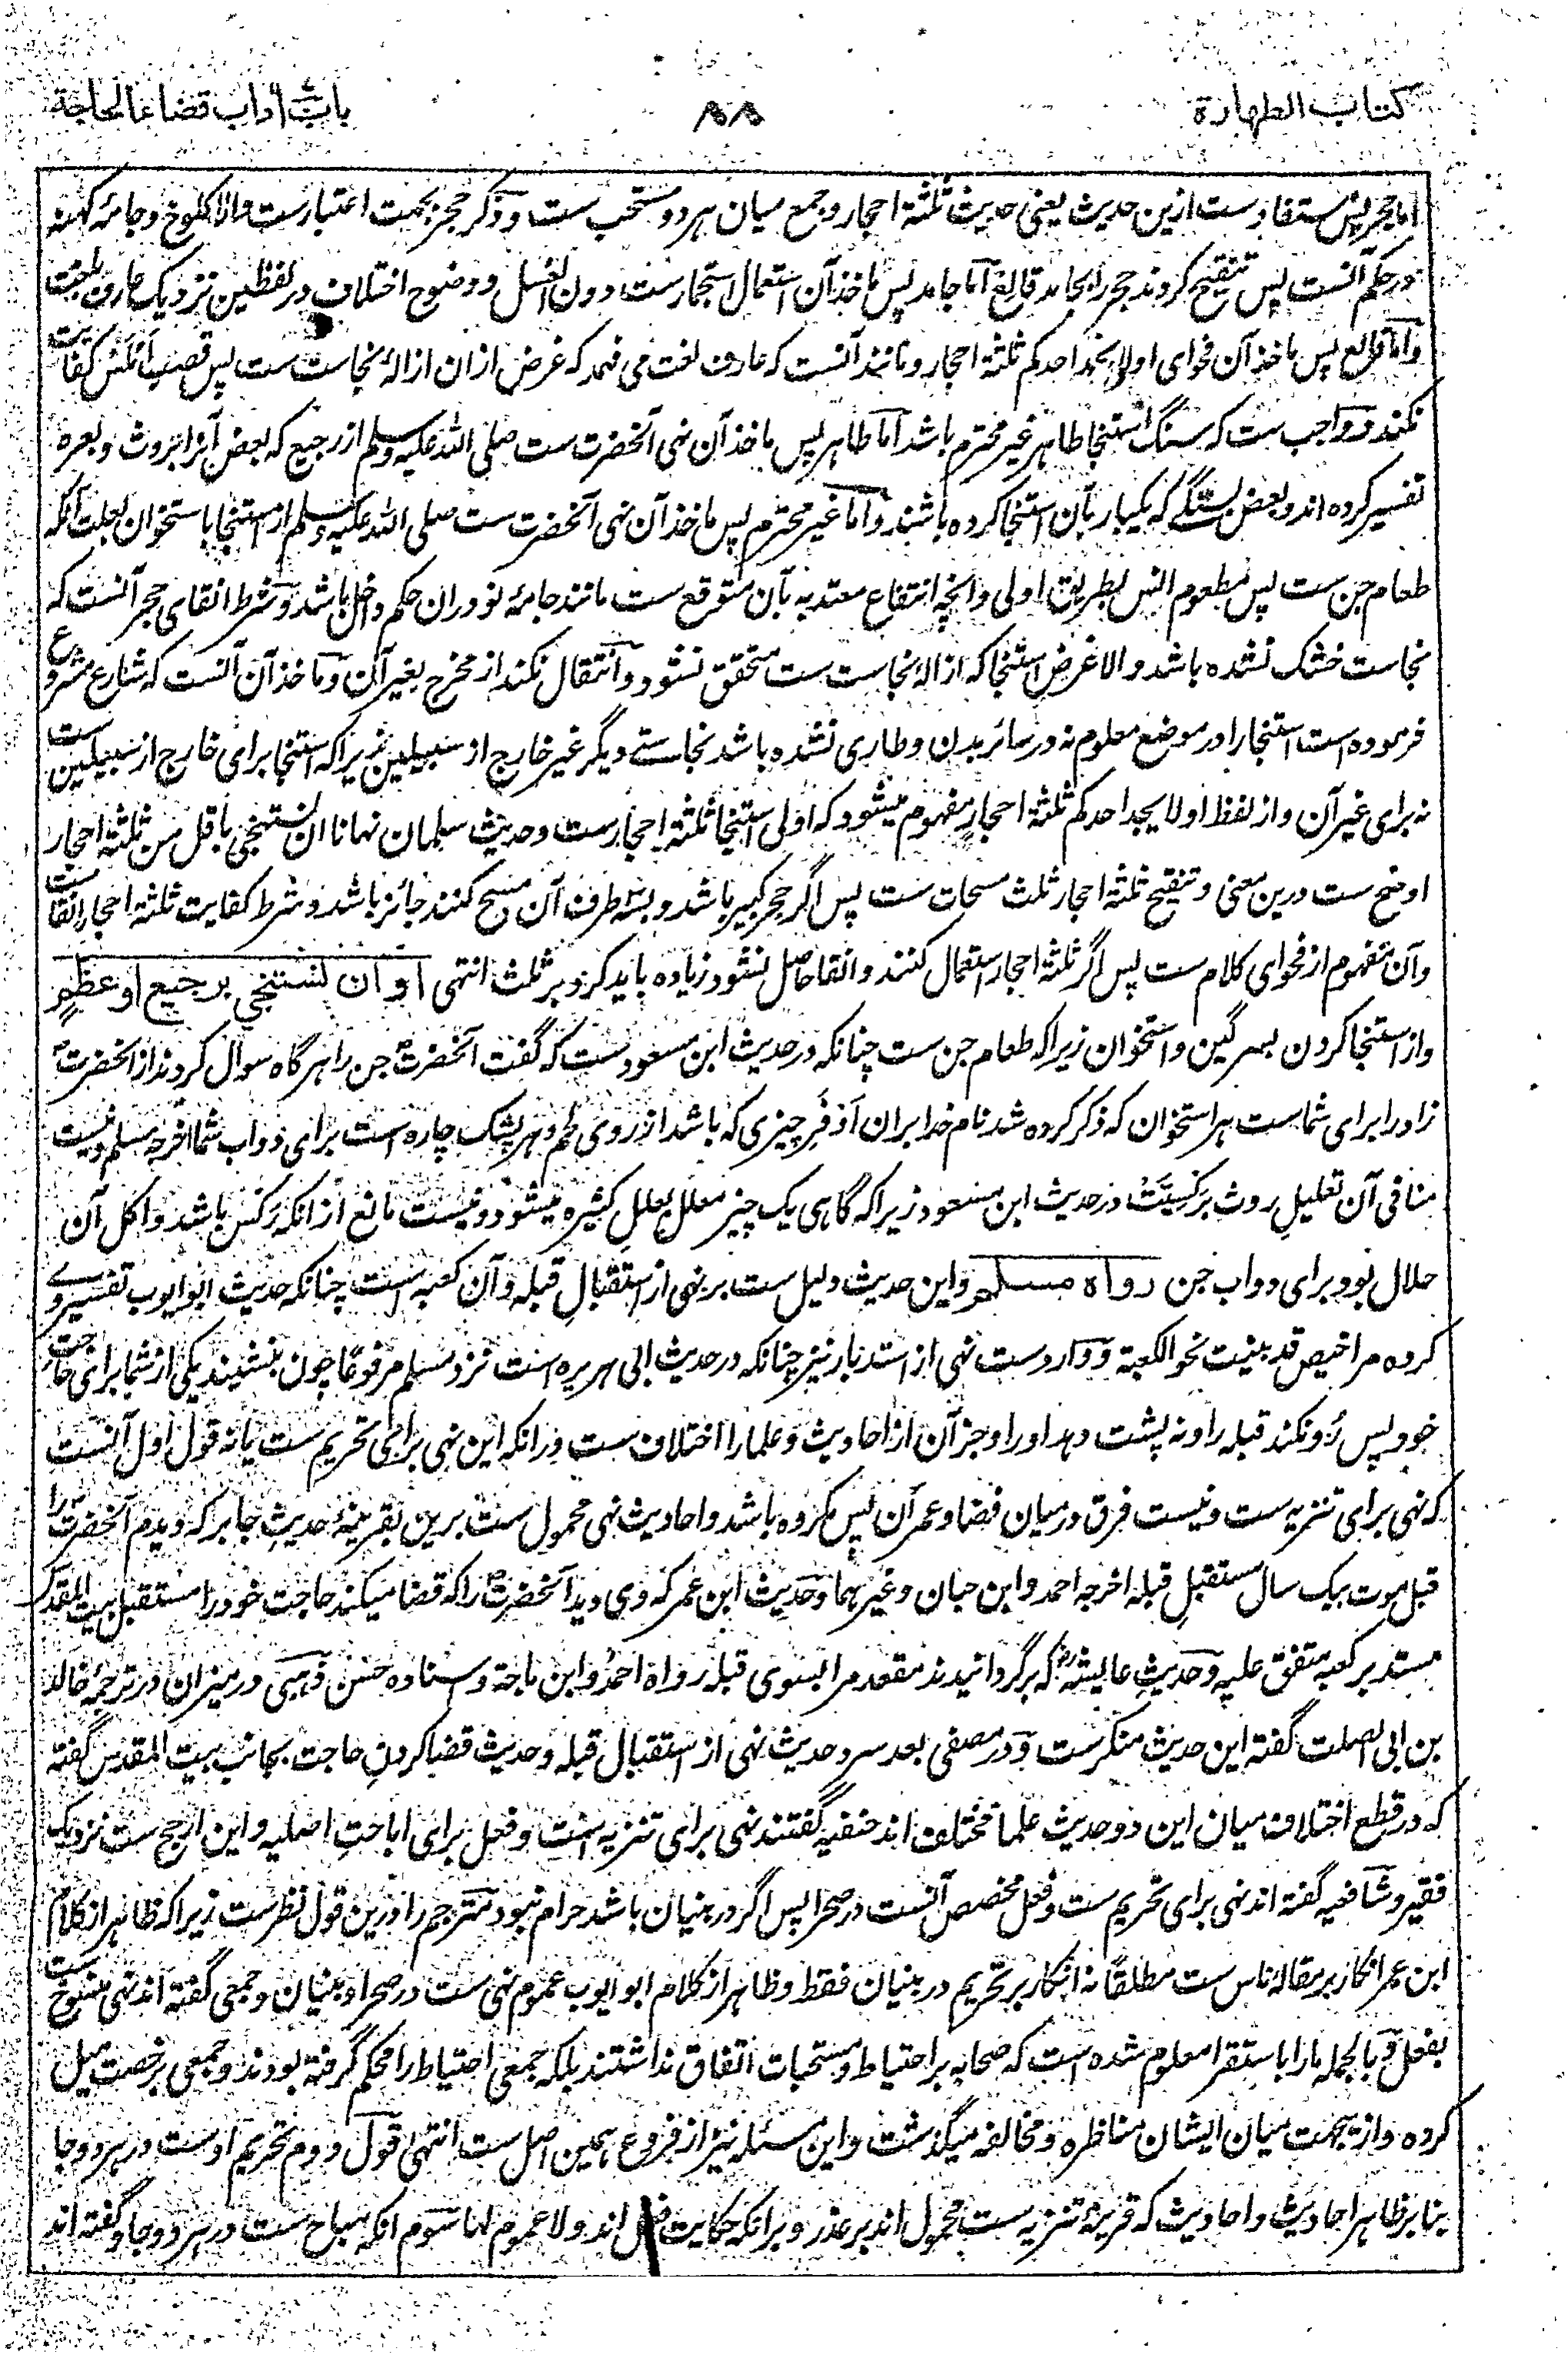 کتاب الطهارة
۸۸
باب آداب قضاء الحاجة
اما حجر پس مستفادست ازین حدیث یعنی حدیث ثلثة احجار و جمع میان هر دو مستحب ست و ذکر حجر بجهت اعتبارست والا کلوخ و جامهٔ کهنه
در حکم آنست پس تنقیح کردند حجر را بجامد قالع اما جامد پس ماخذ آن استعمال استجمارست دون الغسل و وضوح اختلاف در لفظین نزدیک عارف بلغت
واما قالع پس ماخذ آن فحوای اولا یجد احدکم ثلثة احجار و مانند آنست که عارف لغت می فهمد که غرض ازان ازالهٔ نجاست ست پس قصب املس کفایت
نکند و واجب ست که سنگ استنجا طاهر غیر محترم باشد اما طاهر پس ماخذ آن نهی آنحضرت ست صلی الله علیه وسلم از رجیع که بعض آنرا بروث و بعره
تفسیر کرده اند و بعض بسنگے که یکبار بآن استنجا کرده باشند و اما غیر محترم پس ماخذ آن نهی آنحضرت ست صلی الله علیه وسلم از استنجا باستخوان بعلت آنکه
طعام جن ست پس مطعوم انس بطریق اولی و انچه انتفاع معتد به بآن متوقع ست مانند جامهٔ نو دران حکم داخل باشد و شرط انقای حجر آنست که
نجاست خشک نشده باشد والا غرض استنجا که ازالهٔ نجاست ست متحقق نشود و انتقال نکند از مخرج بغیر آن و ماخذ آن آنست که شارع مشروع
فرموده است استنجا را در موضع معلوم نه در سائر بدن و طاری نشده باشد نجاستے دیگر غیر خارج از سبیلین زیراکه استنجا برای خارج از سبیلین ست
نه برای غیر آن و از لفظ اولا یجد احدکم ثلثة احجار مفهوم میشود که اولی استنجا ثلثة احجارست و حدیث سلمان نهانا ان نستنجی باقل من ثلثة احجار
اوضح ست درین معنی و تنقیح ثلثة احجار ثلث مسحات ست پس اگر حجر کبیر باشد و بسه طرف آن مسح کنند جائز باشد و شرط کفایت ثلثة احجار انقا ست
وآن مفهوم از فحوای کلام ست پس اگر ثلثة احجار استعمال کنند و انقا حاصل نشود زیاده باید کرد بر ثلث انتهی او ان نستنجي برجيع او عظم
و از استنجا کردن بسرگین و استخوان زیراکه طعام جن ست چنانکه در حدیث ابن مسعودست که گفت آنحضرتؐ جن را هرگاه سوال کردند از آنحضرتؐ
زاد را برای شماست هر استخوان که ذکر کرده شد نام خدا بران اوفر چیزی که باشد از روی لحم و هر پشک چاره است برای دواب شما اخرجه مسلم و نیست
منافی آن تعلیل روث برکسیت در حدیث ابن مسعود زیراکه گاهی یک چیز معلل بعلل کثیره میشود و نیست مانع ازانکه رکس باشد و اکل آن
حلال بود برای دواب جن رواه مسلم و این حدیث دلیل ست بر نهی از استقبال قبله و آن کعبه است چنانکه حدیث ابو ایوب تفسیر وے
کرده مراحیض قد بنیت نحو الکعبة و واردست نهی از استدبار نیز چنانکه در حدیث ابی هریره است نزد مسلم مرفوعًا چون بنشیند یکی از شما برای حاجت
خود پس رو نکند قبله را و نه پشت دهد او را و جز آن از احادیث و علما را اختلاف ست درانکه این نهی برای تحریم ست یا نه قول اول آنست
که نهی برای تنزیه ست و نیست فرق درمیان فضا و عمران پس مکروه باشد و احادیث نهی محمول ست برین بقرینهٔ حدیث جابر که دیدم آنحضرتؐ را
قبل موت بیک سال مستقبل قبله اخرجه احمد و ابن حبان و غیرهما و حدیث ابن عمر که وی دید آنحضرتؐ را که قضا میکند حاجت خود را مستقبل بیت المقدس
مستدبر کعبه متفق علیه و حدیث عایشهؓ که برگردانیدند مقعد مرا بسوی قبله رواه احمد و ابن ماجة و اسناده حسن ذهبی در میزان در ترجمهٔ خالد
بن ابی الصلت گفته این حدیث منکرست و در مصفی بعد سرد حدیث نهی از استقبال قبله و حدیث قضا کردن حاجت بجانب بیت المقدس گفته
که در قطع اختلاف میان این دو حدیث علما مختلف اند حنفیه گفتند نهی برای تنزیه است و فعل برای اباحت اصلیه و این ارجح ست نزدیک
فقیر و شافعیه گفته اند نهی برای تحریم ست و فعل مخصص آنست در صحرا پس اگر در بنیان باشد حرام نبود مترجم را درین قول نظرست زیراکه ظاهر از کلام
ابن عمر انکار بر مقاله ناس ست مطلقًا نه انکار بر تحریم در بنیان فقط و ظاهر از کلام ابو ایوب عموم نهی ست در صحرا و بنیان و جمعی گفته اند نهی منسوخ ست
بفعل و بالجمله ما را باستقرا معلوم شده است که صحابه بر احتیاط و مستحبات اتفاق نداشتند بلکه جمعی احتیاط را محکم گرفته بودند و جمعی برخصت میل
کرده و ازینجهت میان ایشان مناظره و مخالفه میگذشت و این مسئله نیز از فروع همین اصل ست انتهی قول دوم تحریم اوست در هر دو جا
بنا بر ظاهر احادیث و احادیث که قرینهٔ تنزیه ست محمول اند بر عذر و برانکه حکایت فعل اند و لا عموم لها سوم انکه مباح ست در هر دو جا و گفته اند